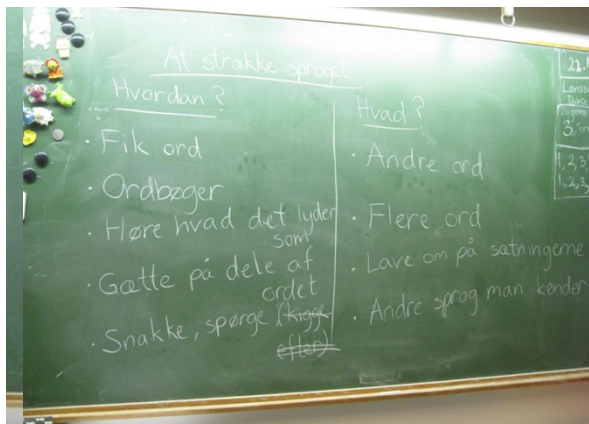 At strække sproget
Hvordan?
· Fik ord
· Ordbøger
· Høre hvad det lyder
som
· Gætte på dele af
ordet
· Snakke, spørge (kigge
efter)
Hvad?
· Andre ord
· Flere ord
· Lave om på sætningerne
· Andre sprog man kender
22.
1, 2, 3,
1, 2, 3,